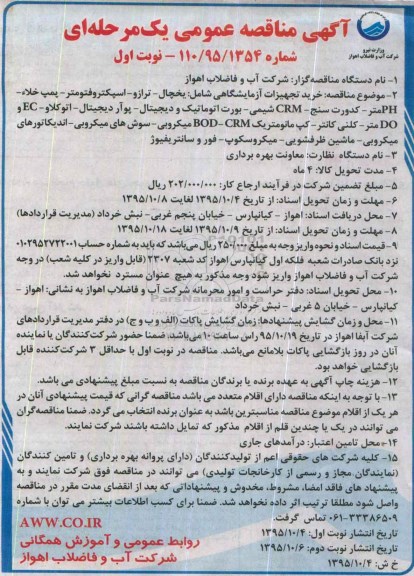 آگهی مناقصه عمومی یک‌مرحله‌ای
شماره ۱۱۰/۹۵/۱۳۵۴ - نوبت اول
وزارت نیرو
شرکت آب و فاضلاب اهواز
۱- نام دستگاه مناقصه‌گزار: شرکت آب و فاضلاب اهواز
۲- موضوع مناقصه: خرید تجهیزات آزمایشگاهی شامل: یخچال - ترازو - اسپکتروفتومتر - پمپ خلاء-
PHمتر - کدورت سنج - CRM شیمی - بورت اتوماتیک و دیجیتال - پوآر دیجیتال - اتوکلاو - EC و
DO متر - کلنی کانتر - کپ مانومتریک BOD- CRM میکروبی - سوش های میکروبی - اندیکاتورهای
میکروبی - ماشین ظرفشویی - میکروسکوپ - فور و سانتریفیوژ
۳- نام دستگاه نظارت: معاونت بهره برداری
۴- مدت تحویل کالا: ۴ ماه
۵- مبلغ تضمین شرکت در فرآیند ارجاع کار: ۲۰۲/۰۰۰/۰۰۰ ریال
۶- مهلت و زمان تحویل اسناد: از تاریخ ۱۳۹۵/۱۰/۴ لغایت ۱۳۹۵/۱۰/۸
۷- محل دریافت اسناد: اهواز - کیانپارس - خیابان پنجم غربی - نبش خرداد (مدیریت قراردادها)
۸- مهلت و زمان تحویل اسناد: از تاریخ ۱۳۹۵/۱۰/۹ لغایت ۱۳۹۵/۱۰/۱۸
۹- قیمت اسناد و نحوه واریز وجه به مبلغ ۲۵۰/۰۰۰ ریال می‌باشد که باید به شماره حساب ۰۱۰۲۹۵۲۷۲۲۰۰۱
نزد بانک صادرات شعبه فلکه اول کیانپارس اهواز کد شعبه ۲۳۰۷ (قابل واریز در کلیه شعب) در وجه
شرکت آب و فاضلاب اهواز واریز شود وجه مذکور به هیچ عنوان مسترد نخواهد شد.
۱۰- محل تحویل اسناد: دفتر حراست و امور محرمانه شرکت آب و فاضلاب اهواز به نشانی: اهواز -
کیانپارس - خیابان ۵ غربی - نبش خرداد
ParsNamadData
۱۱- محل و زمان گشایش پیشنهادها: زمان گشایش پاکات (الف و ب و ج) در دفتر مدیریت قراردادهای
شرکت آبفا اهواز در تاریخ ۹۵/۱۰/۱۹ راس ساعت ۱۰ می‌باشد. ضمنا حضور شرکت‌کنندگان یا نماینده
آنان در روز بازگشایی پاکات بلامانع می‌باشد. مناقصه در نوبت اول با حداقل ۳ شرکت‌کننده قابل
بازگشایی خواهد بود.
۱۲- هزینه چاپ آگهی به عهده برنده یا برندگان مناقصه به نسبت مبلغ پیشنهادی می باشد.
۱۳- با توجه به اینکه مناقصه دارای اقلام متعدد می باشد مناقصه گرانی که قیمت پیشنهادی آنان در
هر یک از اقلام موضوع مناقصه مناسبترین باشد به عنوان برنده انتخاب می گردد. ضمنا مناقصه‌گران
می توانند در یک یا چندین قلم از اقلام مذکور که تمایل داشته باشند شرکت نمایند.
۱۴- محل تامین اعتبار: درآمدهای جاری
۱۵- کلیه شرکت های حقوقی اعم از تولیدکنندگان (دارای پروانه بهره برداری) و تامین کنندگان
(نمایندگان مجاز و رسمی از کارخانجات تولیدی) می توانند در مناقصه فوق شرکت نمایند و به
پیشنهاد های فاقد امضا، مشروط، مخدوش و پیشنهاداتی که بعد از انقضای مدت مقرر در مناقصه
واصل شود مطلقا ترتیب اثر داده نخواهد شد. ضمنا برای کسب اطلاعات بیشتر می توان با شماره
۳۳۳۸۶۵۰۹-۰۶۱ تماس گرفت.
تاریخ انتشار نوبت اول: ۱۳۹۵/۱۰/۴
تاریخ انتشار نوبت دوم: ۱۳۹۵/۱۰/۶
خ ش: ۱۳۹۵/۱۰/۴
AWW.CO.IR
روابط عمومی و آموزش همگانی
شرکت آب و فاضلاب اهواز